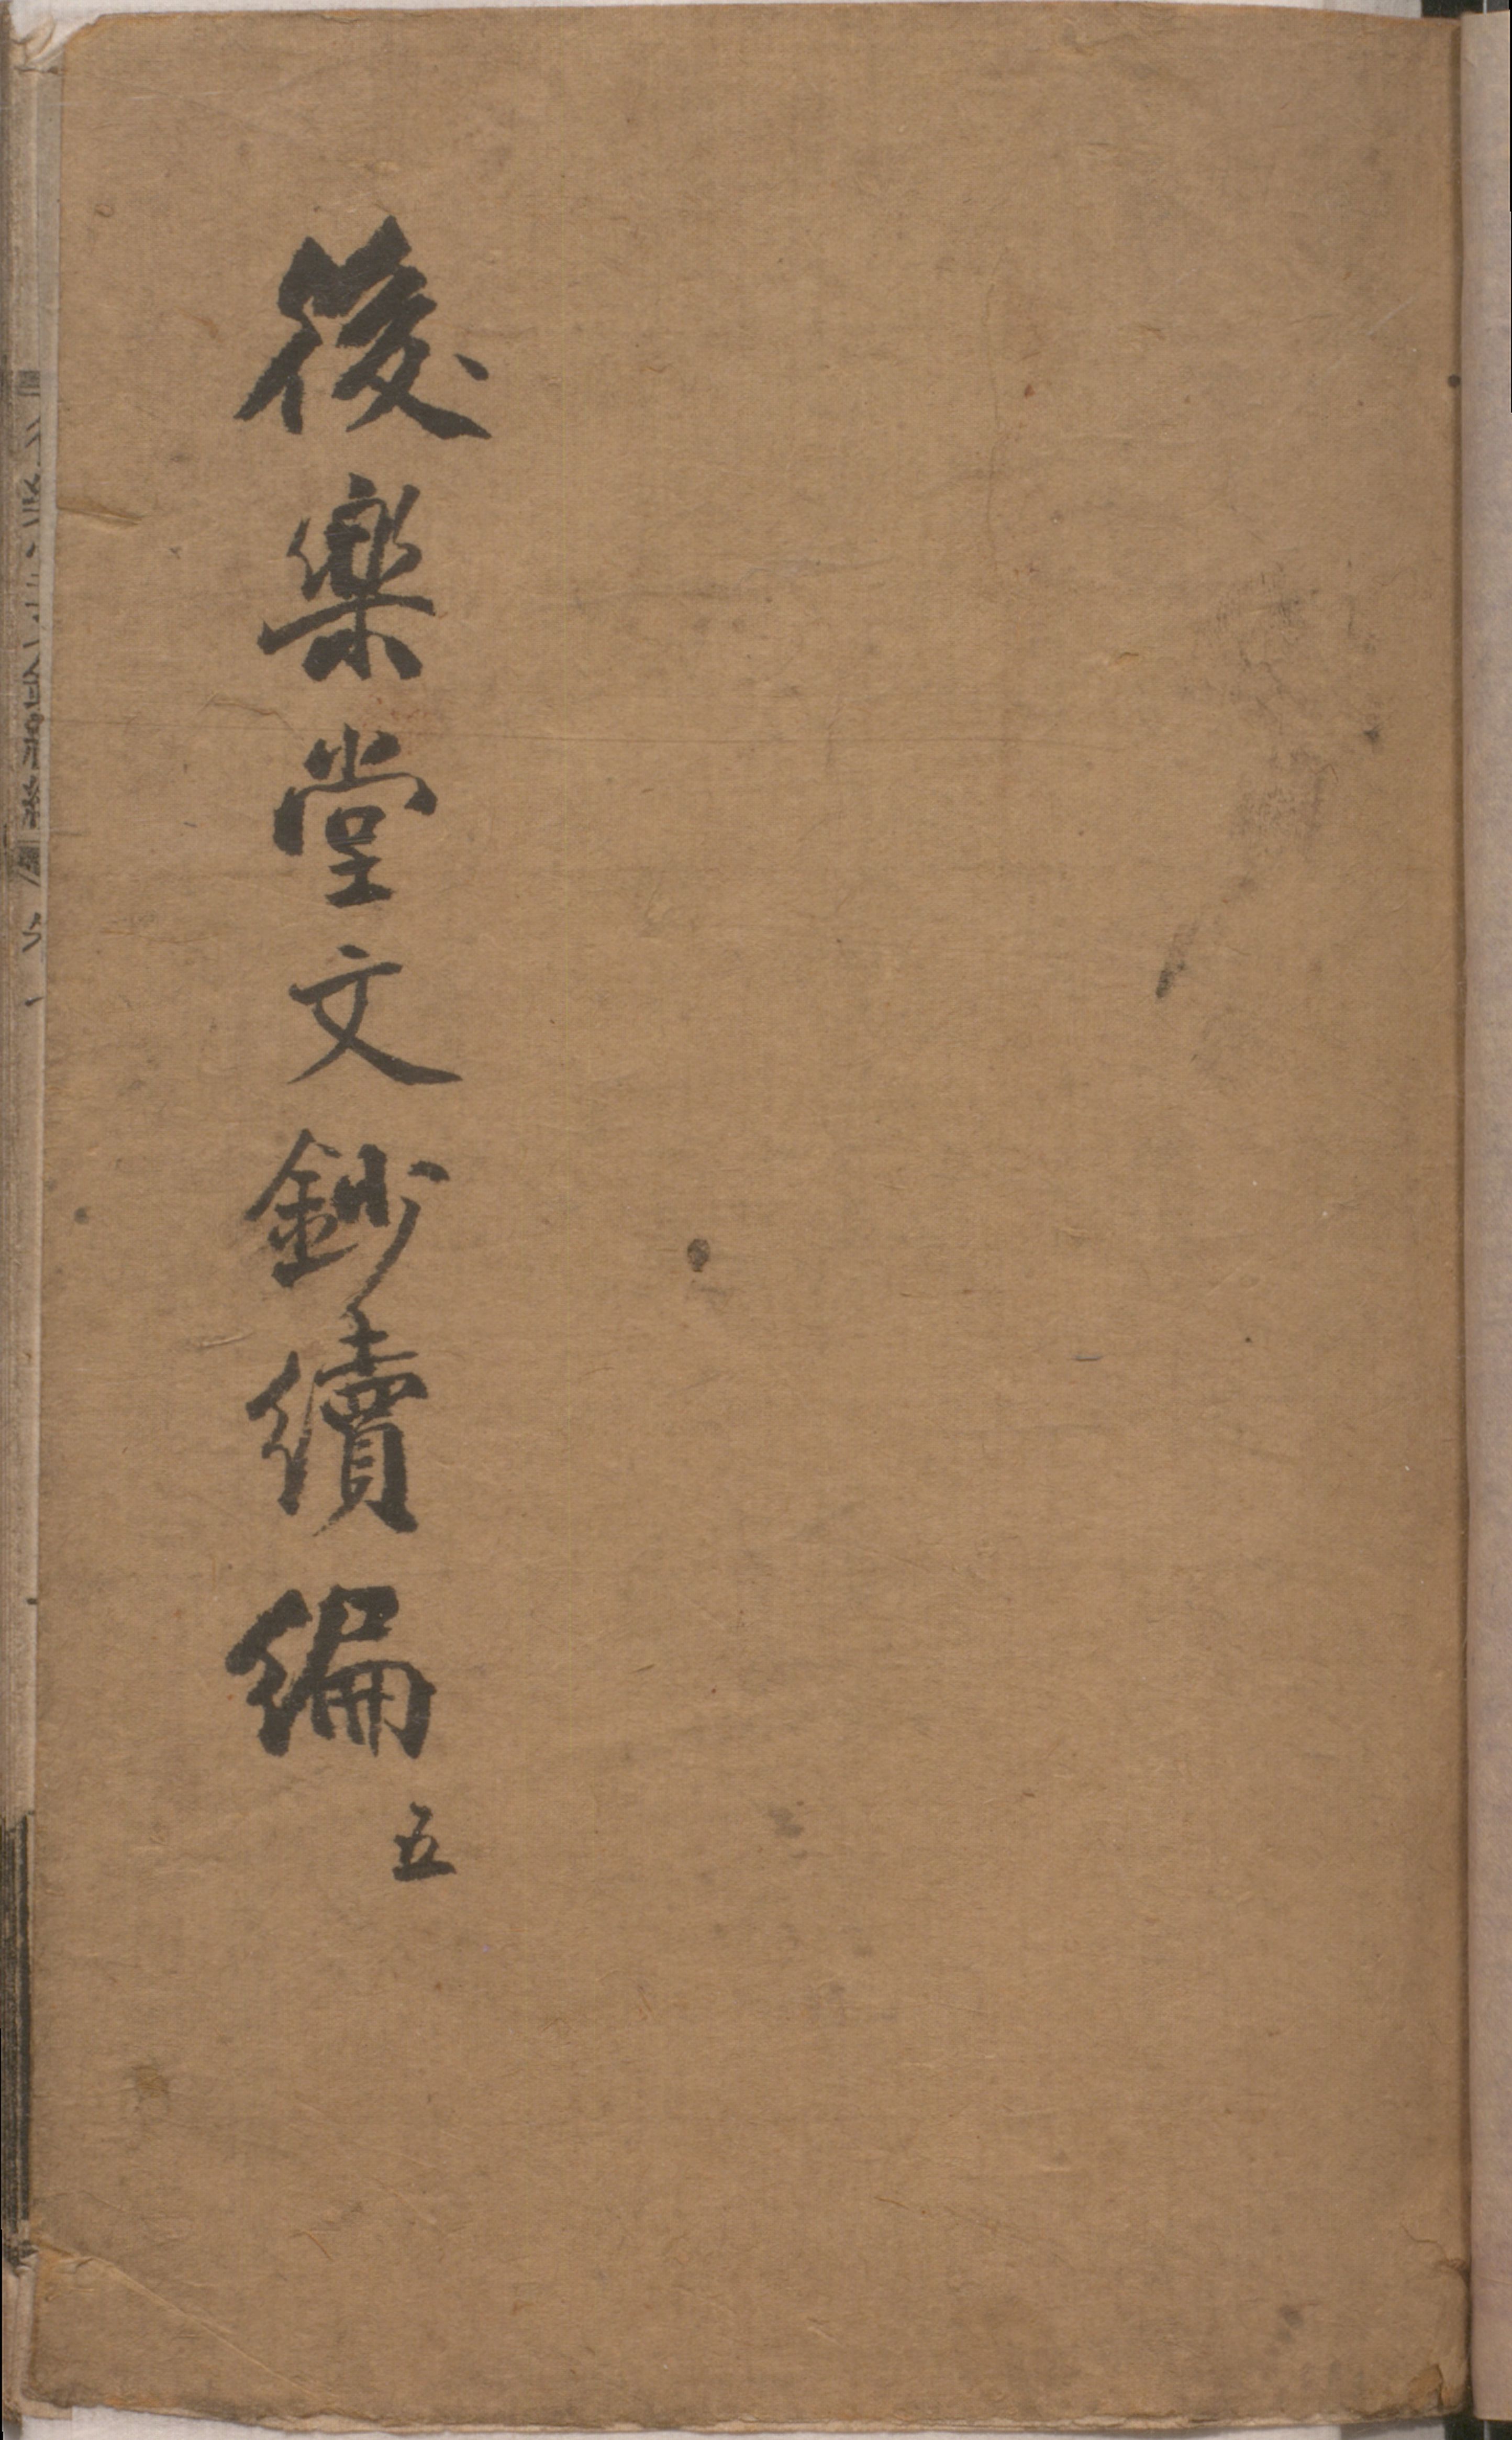 後樂堂文鈔續編
五